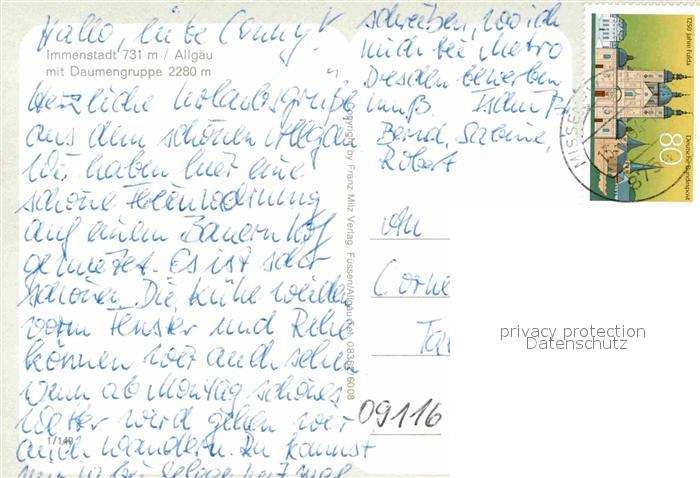 Hallo, liebe Conny!
Immenstadt 731 m / Allgäu
mit Daumengruppe 2280 m
Herzliche Urlaubsgrüße
aus dem schönen Allgäu.
Wir haben hier eine
schöne Ferienwohnung
auf einem Bauernhof
gemietet. Es ist sehr
schön. Die Kühe weiden
vorm Fenster und Rehe
können wir auch sehen.
Wenn ab Montag schönes
Wetter wird gehen wir
auch wandern. Du kannst
mir ja bei Gelegenheit mal
1/149
schreiben, wo ich
mich bei Metro
Dresden bewerben
muß. Tschüß
Bernd, Sabine,
Robert
Copyright by Franz Milz Verlag, Füssen/Allgäu Tel. 08362/6008
An
Corne
Tau
09116
1250 Jahre Fulda
80
Deutsche Bundespost
MISSEN
privacy protection
Datenschutz